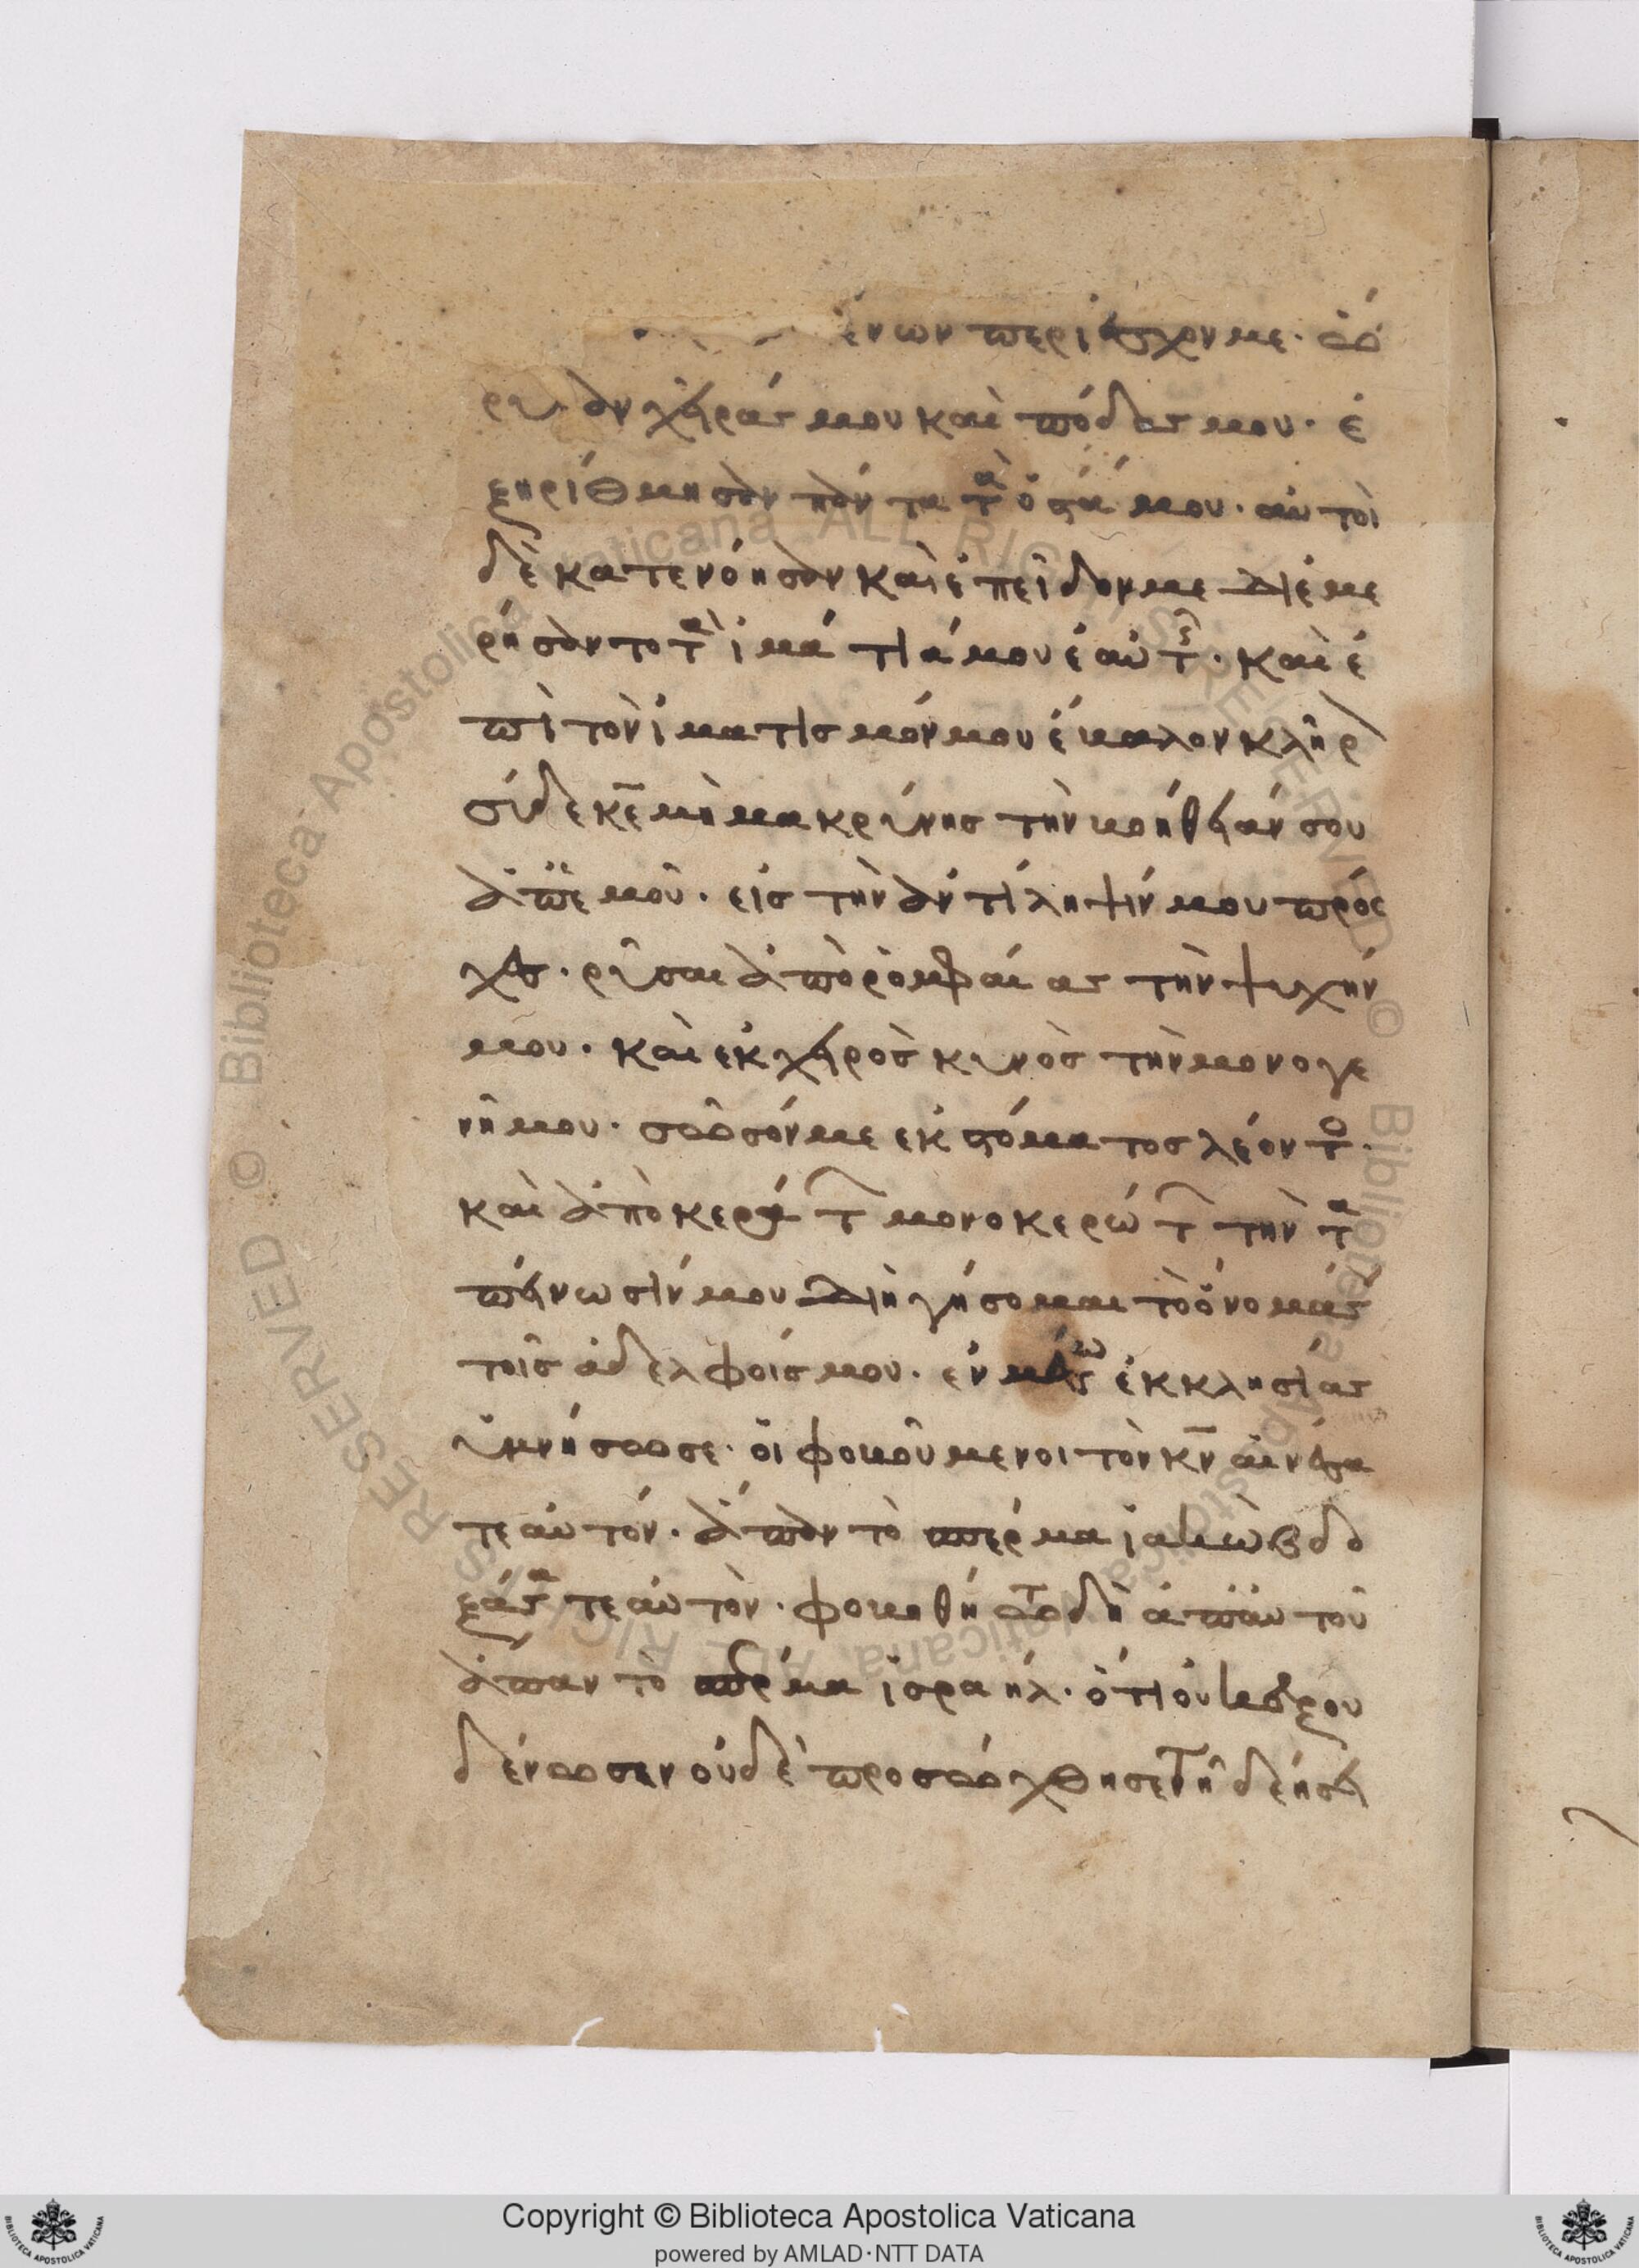 ένων περιέσχον με · ὤ
ρυξαν χεῖράς μου καὶ πόδας μου · ἐ
ξηρίθμησαν πάντα τὰ ὀστά μου · αὐτοὶ
δὲ κατενόησαν καὶ ἐπεῖδον με διεμε
ρήσαντο τὰ ἱμάτιά μου ἑαυτοῖς · καὶ ἐ
πὶ τὸν ἱματισμόν μου ἔβαλον κλῆρ
σύ δε κε̅ μὴ μακρύνης τὴν βοήθειάν σου
ἀπ ἐμοῦ · εἰς τὴν ἀντίληψίν μου πρόσ
χες · ρῦσαι ἀπὸ ρομφαίας τὴν ψυχήν
μου · καὶ ἐκ χειρὸς κυνὸς τὴν μονογε
νῆ μου · σῶσόν με ἐκ στόματος λέοντος ·
καὶ ἀπὸ κεράτων μονοκερώτων τὴν τα
πείνωσίν μου διηγήσομαι τὸ ὄνομά σου
τοῖς ἀδελφοίς μου · ἐν μέσω ἐκκλησίας
ὑμνήσω σε · οἱ φοβούμενοι τὸν κν̅ αἰνέσα
τε αὐτόν · ἅπαν τὸ σπέρμα ἰακὼβ δο
ξάσατε αὐτὸν · φοβηθήτω δὴ ἀπ αὐτοῦ
ἅπαν τὸ σπέρμα ἰσραήλ · ὅτι οὐκ ἐξου
δένωσεν οὐδὲ προσώχθησεν τῆ δεήσει
Copyright © Biblioteca Apostolica Vaticana
powered by AMLAD·NTT DATA